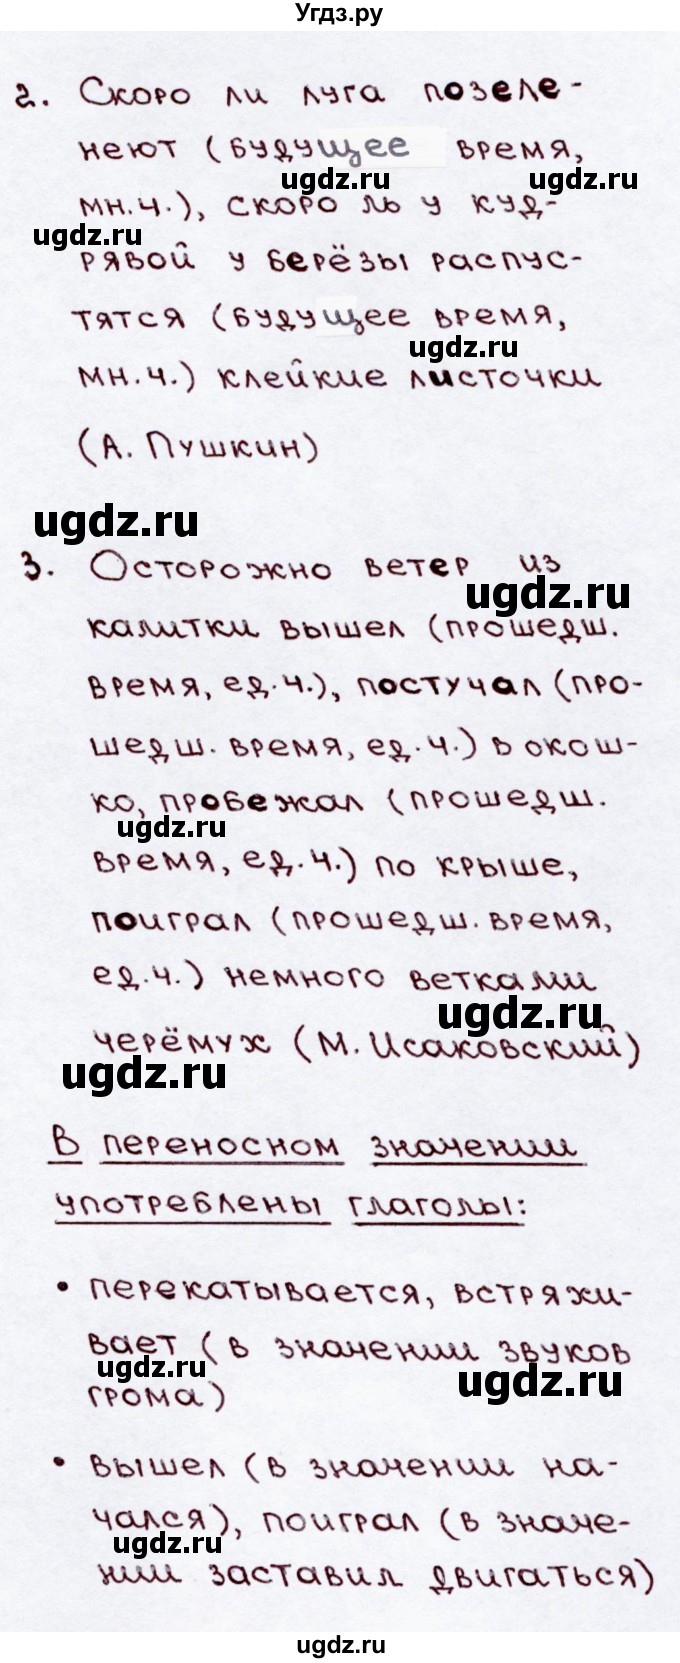 Угдз.ру
2. Скоро ли луга позеле-
неют (будущее время,
ugdz.ru ugdz.ru
мн.ч.), скоро ль у куд-
ugdz.ru
рявой у берёзы распус-
тятся (будущее время,
ugdz.ru
мн.ч.) клейкие листочки
(А. Пушкин)
ugdz.ru
3. Осторожно ветер из
ugdz.ru
калитки вышел (прошедш.
время, ед.ч.), постучал (про-
шедш. время, ед.ч.) в окош-
ко, пробежал (прошедш.
ugdz.ru
время, ед.ч.) по крыше,
поиграл (прошедш. время,
ед.ч.) немного ветками
ugdz.ru
черёмух (М. Исаковский)
ugdz.ru
В переносном значении
употреблены глаголы:
• перекатывается, встряхи-
вает (в значении звуков
ugdz.ru ugdz.ru
грома)
• вышел (в значении на-
чался), поиграл (в значе-
ugdz.ru
нии заставил двигаться)
ugdz.ru